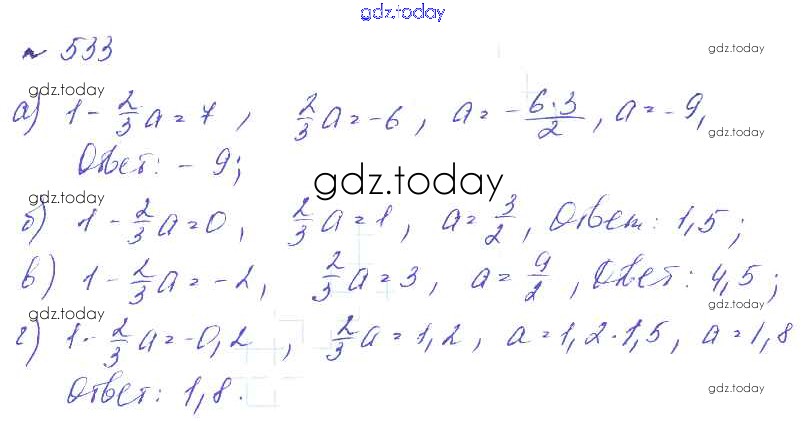 gdz.today
№ 533
gdz.today
gdz.today
а) 1 - 2/3 a = 7, 2/3 a = -6, a = - 6·3/2, a = -9,
gdz.today
Ответ: - 9;
gdz.today
gdz.today
б) 1 - 2/3 a = 0, 2/3 a = 1, a = 3/2, Ответ: 1,5;
gdz.today
в) 1 - 2/3 a = -2, 2/3 a = 3, a = 9/2, Ответ: 4,5;
gdz.today
gdz.today
г) 1 - 2/3 a = -0,2, 2/3 a = 1,2, a = 1,2·1,5, a = 1,8
Ответ: 1,8.
gdz.today